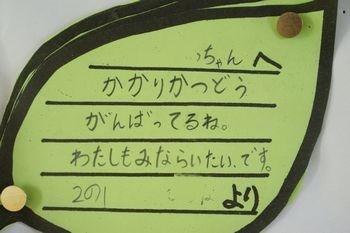 っちゃんへ
かかりかつどう
がんばってるね。
わたしもみならいたい、です。
2の1 より